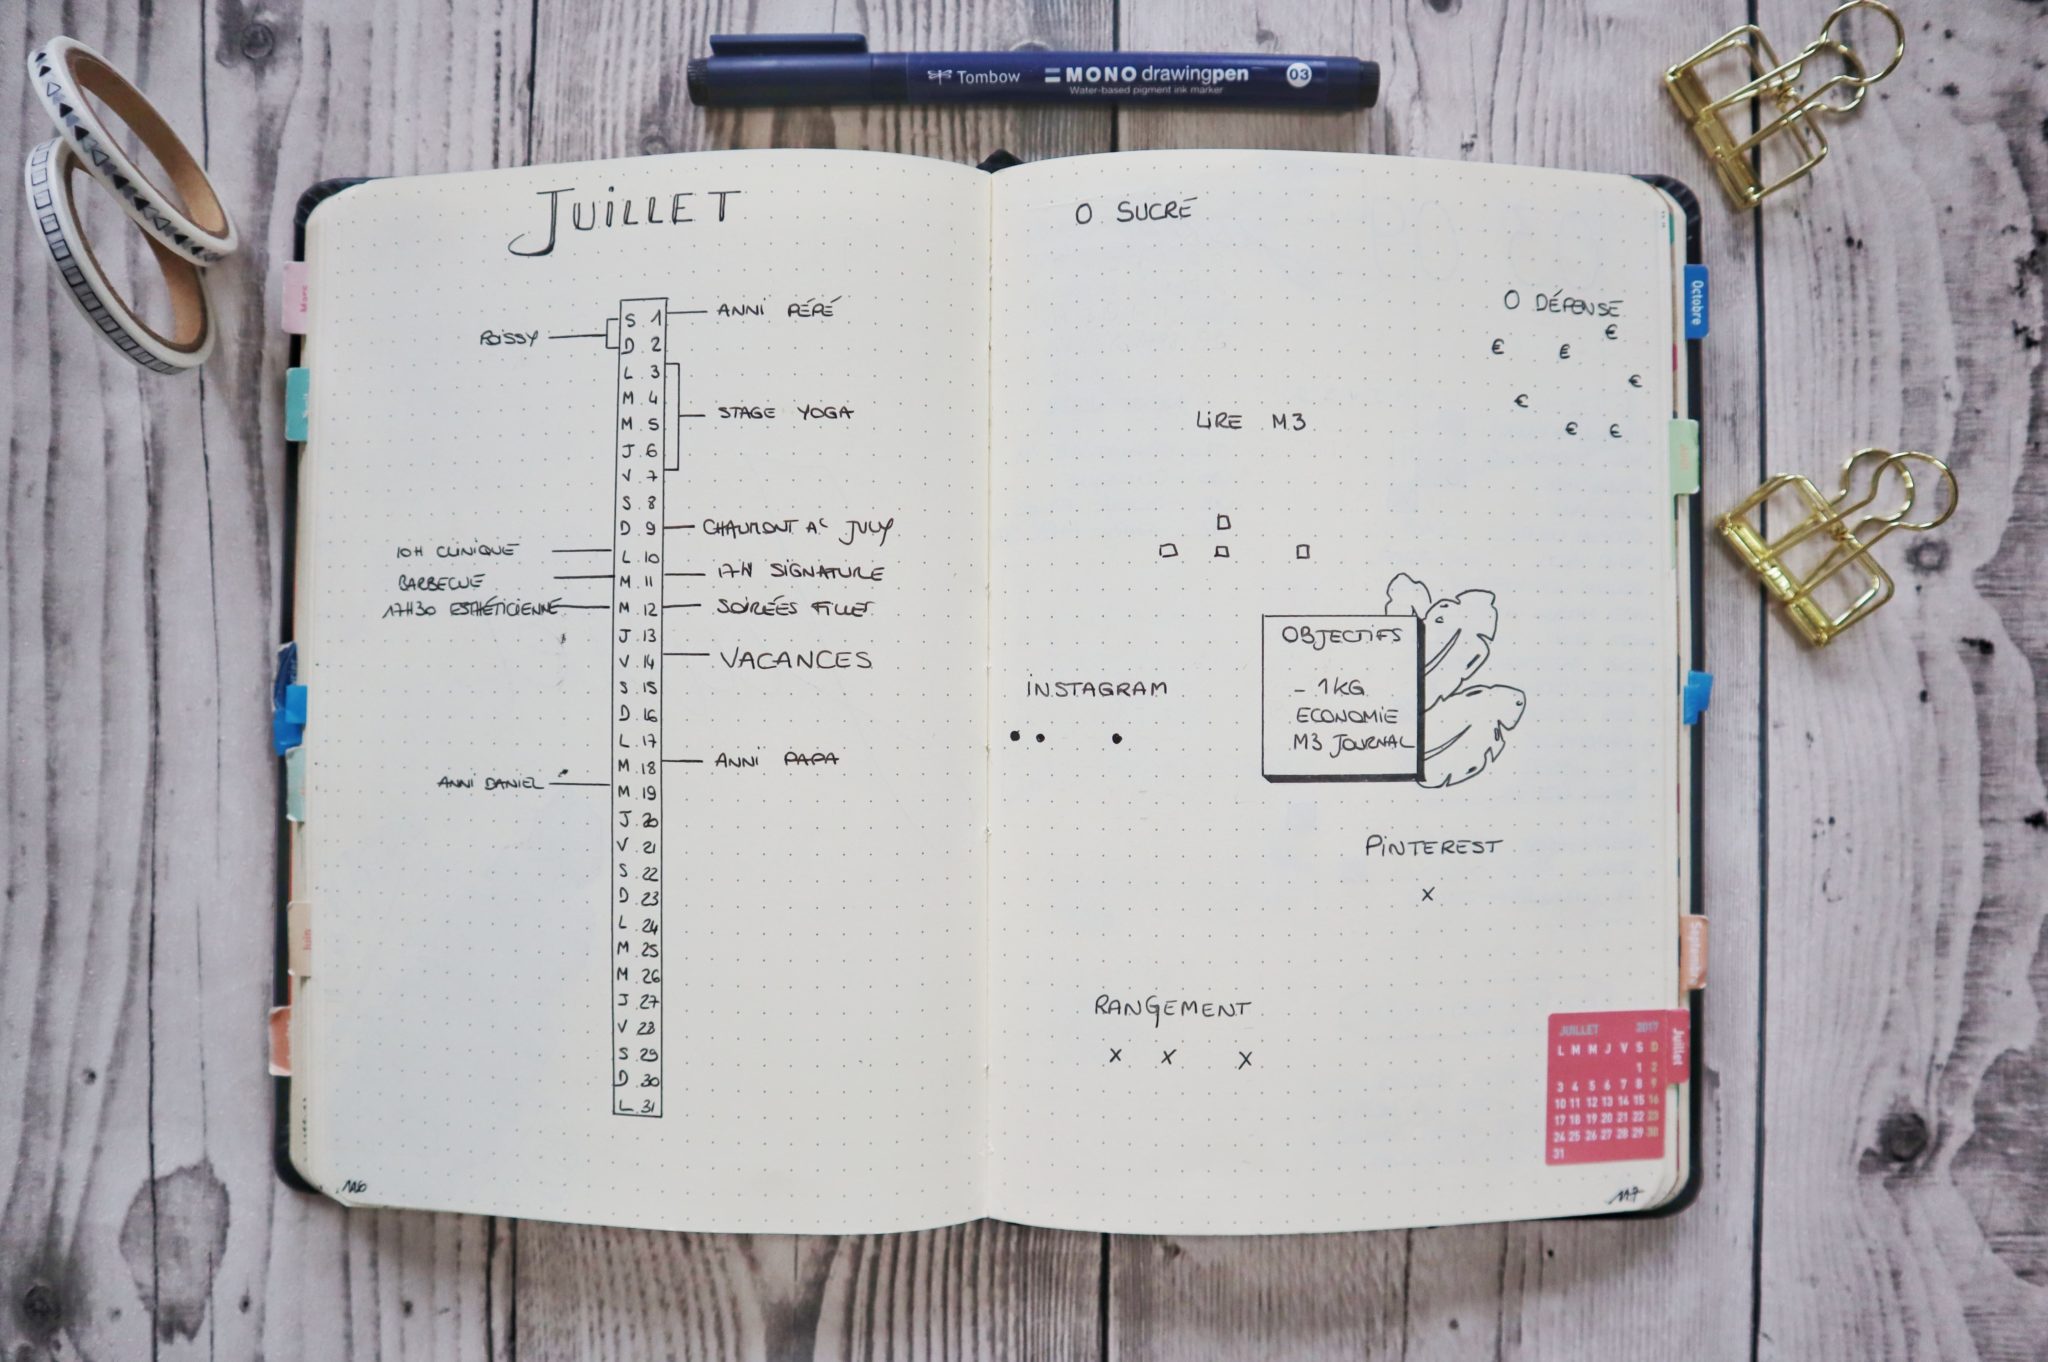 Tombow MONO drawingpen 03
Water-based pigment ink marker
JUILLET
S 1 ANNI PÉPÉ
POISSY
D 2
L 3
M 4
M 5
STAGE YOGA
J 6
V 7
S 8
D 9 CHAUMONT AC JULY
10H CLINIQUE L 10
BARBECUE M 11 17H SIGNATURE
17H30 ESTHÉTICIENNE M 12 SOIRÉES FILLES
J 13
V 14 VACANCES
S 15
D 16
L 17
M 18 ANNI PAPA
ANNI DANIEL M 19
J 20
V 21
S 22
D 23
L 24
M 25
M 26
J 27
V 28
S 29
D 30
L 31
116
O SUCRE
O DÉPENSE
€ € € € € € €
LIRE M3
OBJECTIFS
- 1KG
ECONOMIE
M3 JOURNAL
INSTAGRAM
PINTEREST
X
RANGEMENT
X X X
Octobre
Septembre
Juillet
JUILLET 2017
L M M J V S D
1 2
3 4 5 6 7 8 9
10 11 12 13 14 15 16
17 18 19 20 21 22 23
24 25 26 27 28 29 30
31
117
Mars
Juin